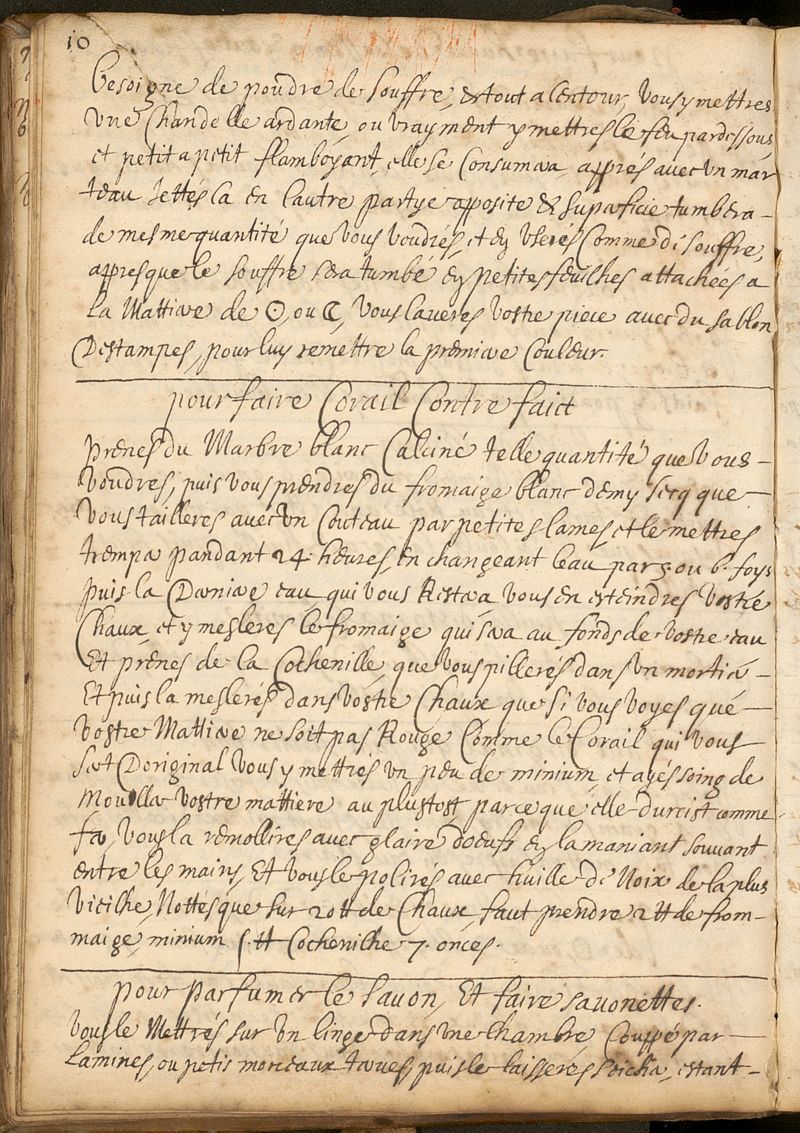 10
besoigne de poudre de souffre, et tout a lentour, vous y mettres
une Chandelle ardante, ou vrayment y mettres le feu par dessous
et petit a petit flamboyant, elle se Consumera appres avec un mar
teau Jettés la en lautre partye opposite et supaficie tumbera –
de mesme quantité que vous voudrés, et en userés Comme de souffre,
appres que le souffre sera tumbé en petites feuilhes attachées a
la Mattiere de ☉, ou ☾, vous laveres vostre piece avec du sablon
Destampes, pour luy remettre la premiere Couleur.
pour faire Corail Contrefaict
Prenes du Marbre blanc Calciné telle quantité que vous –
voudres, puis vous prendres du fromaige blanc demy secq que –
vous tailleres avec un Couteau par petites lames, et le mettres
tremper pandant 24. heures, en changeant leau par 5. ou 6. foys
puis la Derniere eau qui vous Restera vous en esteindres vostre
Chaux, et y mesleres le fromaige qui sera au fonds de vostre eau
Et prenes de la Cochenille que vous pilleres dans un mortier –
Et puis la meslerés dans vostre Chaux que si vous voyes que –
vostre Mattiere ne soit pas Rouge Comme le Corail qui vous
sert Doriginal vous y mettrés un peu de minium et ayés soing de
Mouller vostre mattiere au plustost parce que elle durcist comme
fer, vous la remollires avec glaire doeufs en la maniant souvant
entre les mains, Et vous le polirés avec huille de Noix de la plus
vieilhe, Nottés que sur 20 ℔ de Chaux faut prendre 2 ℔ de from-
maige, minium ʃ. ℔ Cochenilhe 7. onces.
pour parfumer le savon, Et faire savonettes.
vous le Mettrés sur un linge dans une chambre Couppé par –
Lamines, ou petis morceaux puis le laisseres seicher, estant –